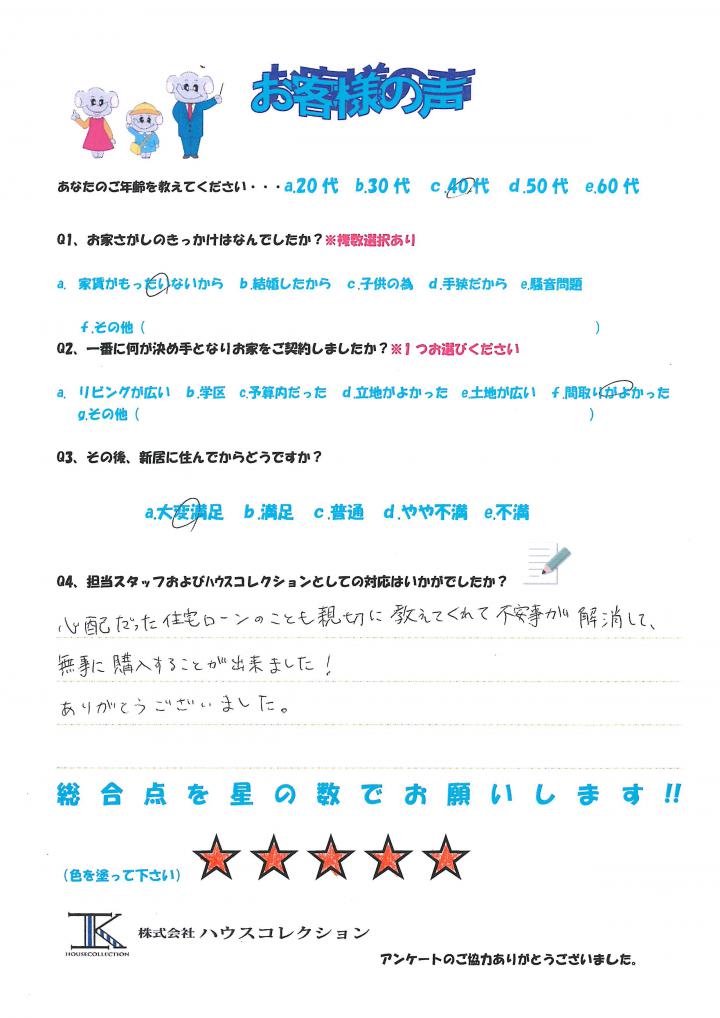 お客様の声
あなたのご年齢を教えてください・・・a.20代 b.30代 c.40代 d.50代 e.60代
Q1、お家さがしのきっかけはなんでしたか？※複数選択あり
a. 家賃がもったいないから b.結婚したから c.子供の為 d.手狭だから e.騒音問題
f.その他（ ）
Q2、一番に何が決め手となりお家をご契約しましたか？※1つお選びください
a. リビングが広い b.学区 c.予算内だった d.立地がよかった e.土地が広い f.間取りがよかった
g.その他（ ）
Q3、その後、新居に住んでからどうですか？
a.大変満足 b.満足 c.普通 d.やや不満 e.不満
Q4、担当スタッフおよびﾊｳｽコレクションとしての対応はいかがでしたか？
心配だった住宅ローンのことも親切に教えてくれて不安事が解消して、
無事に購入することが出来ました！
ありがとうございました。
総合点を星の数でお願いします!!
（色を塗って下さい）
HOUSECOLLECTION
株式会社ハウスコレクション
アンケートのご協力ありがとうございました。